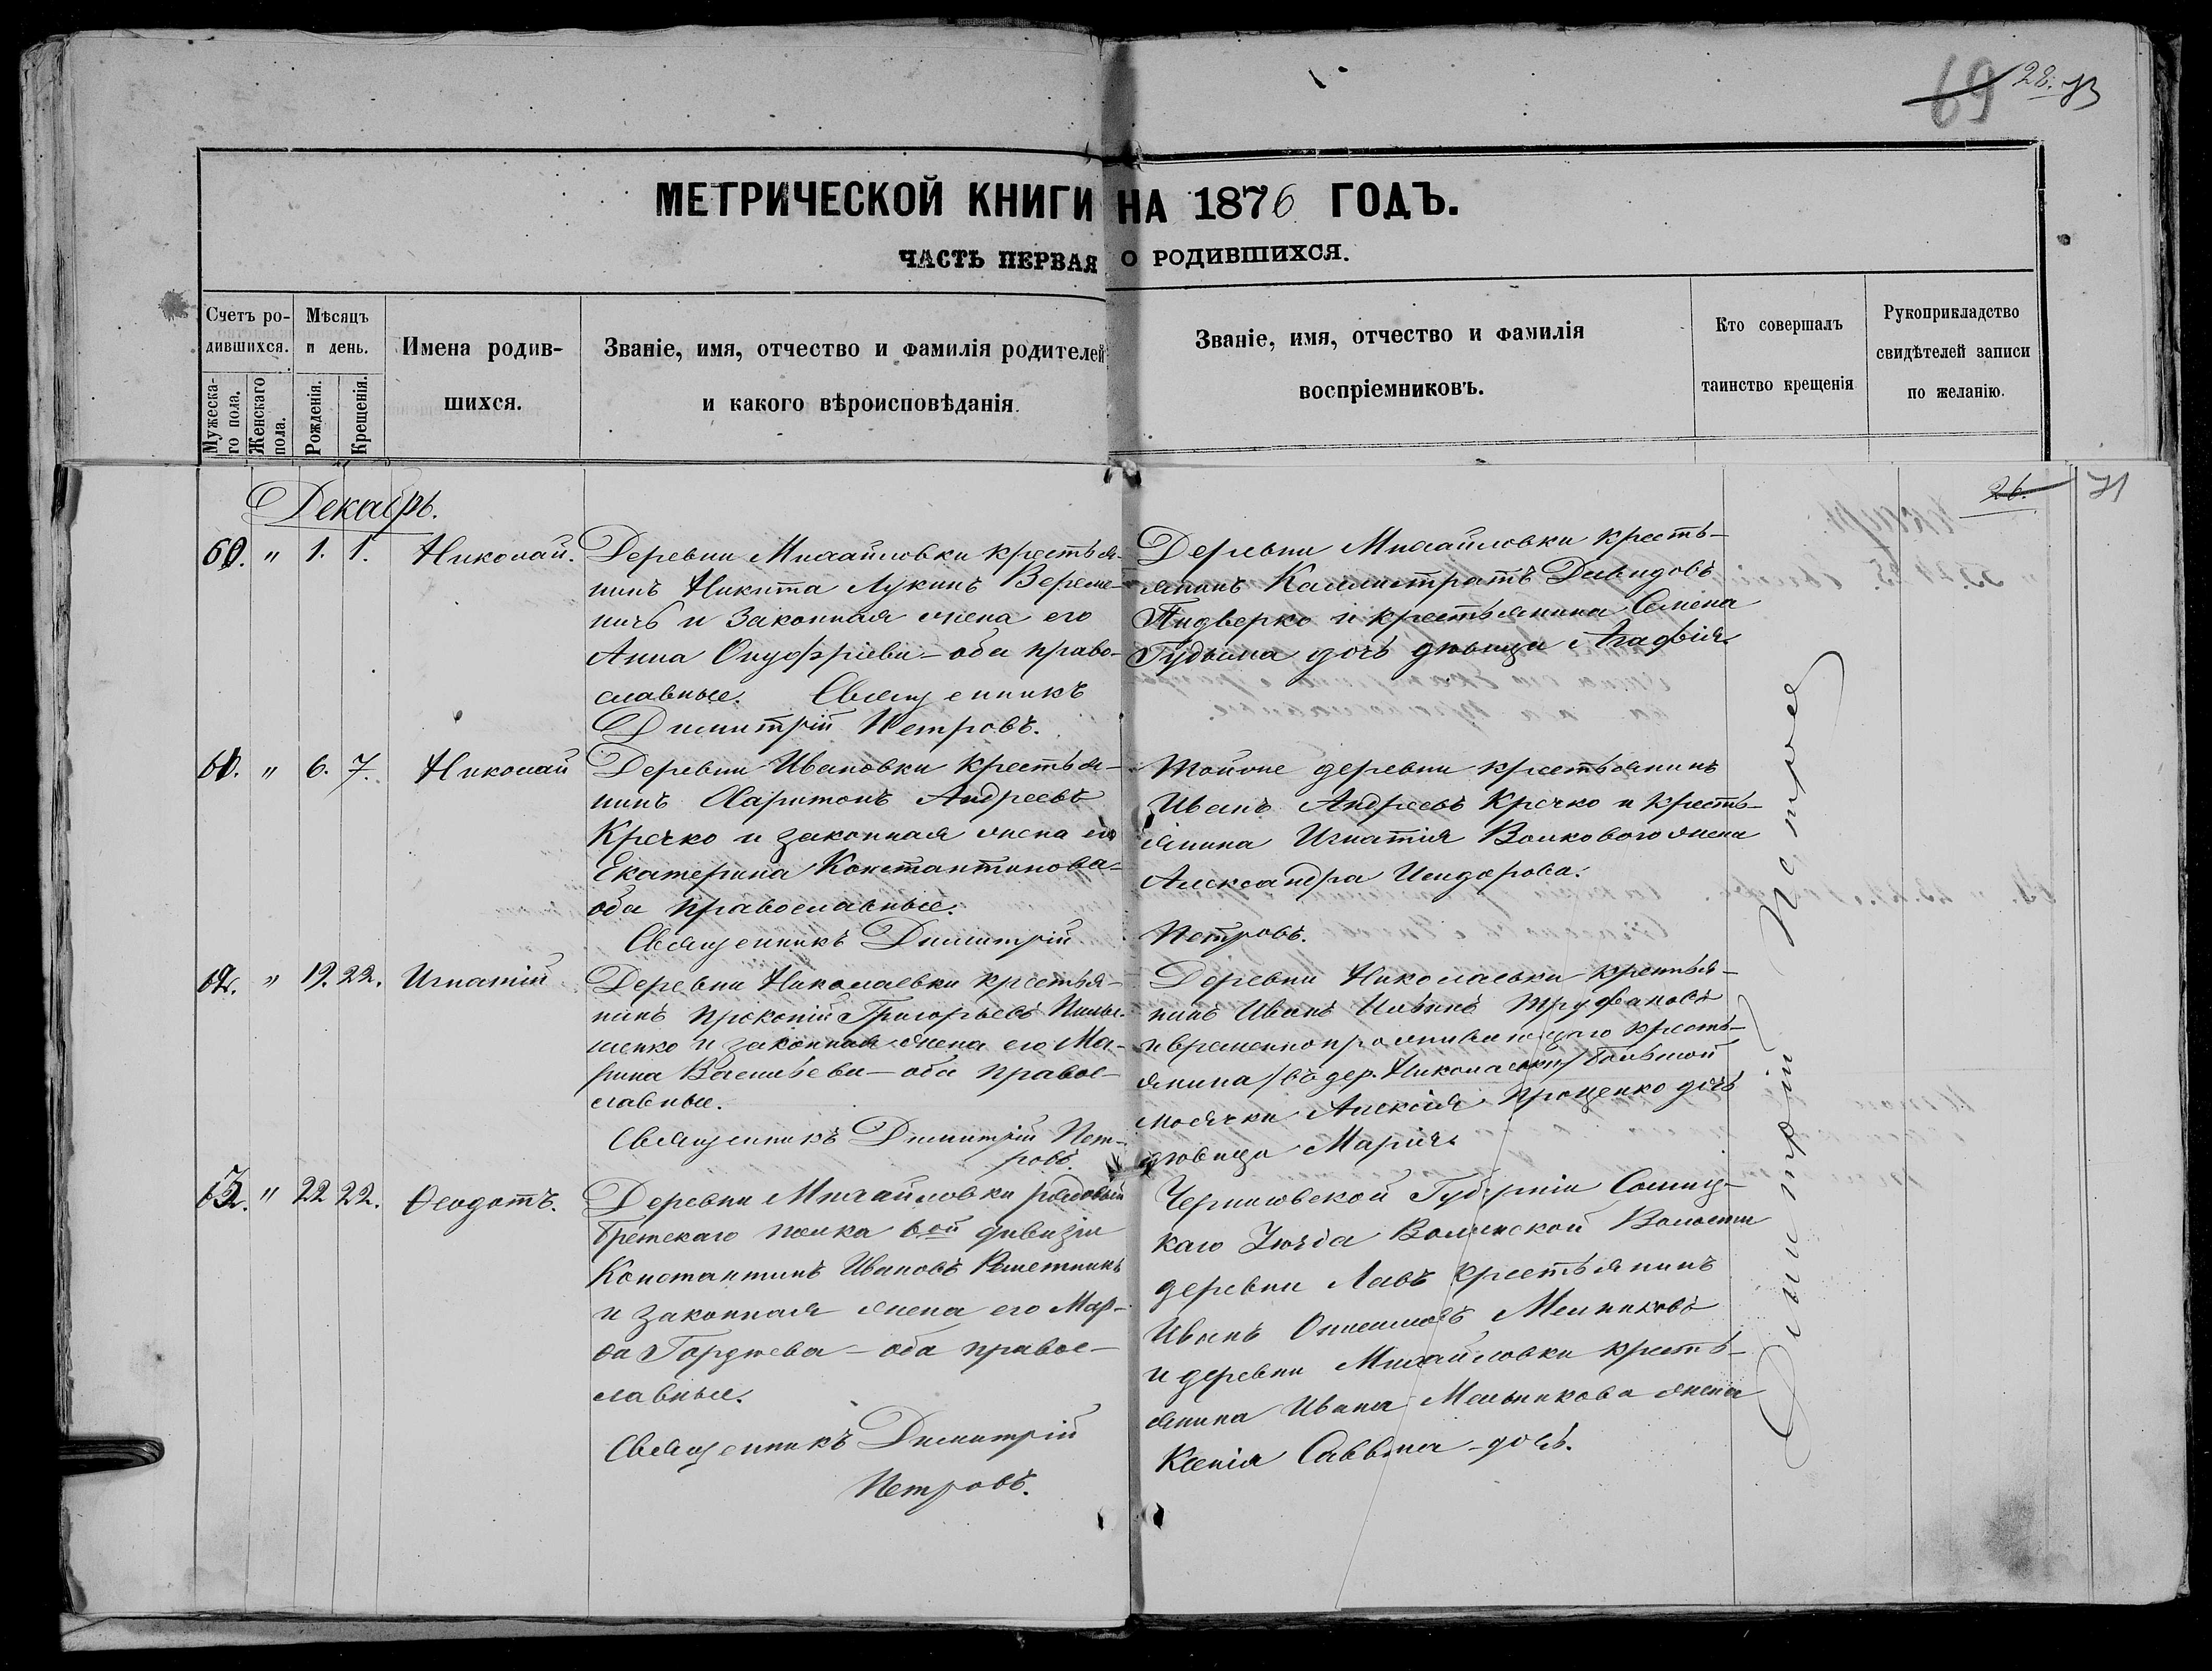 69 28.
МЕТРИЧЕСКОЙ КНИГИ НА 1876 ГОДЪ.
ЧАСТЬ ПЕРВАЯ О РОДИВШИХСЯ.
Счетъ ро-
дившихся.
Мужеска-
го пола.
Женскаго
пола.
Мѣсяцъ
и день.
Рожденія.
Крещенія.
Имена родив-
шихся.
Званіе, имя, отчество и фамилія родителей
и какого вѣроисповѣданія.
Званіе, имя, отчество и фамилія
воспріемниковъ.
Кто совершалъ
таинство крещенія
Рукоприкладство
свидѣтелей записи
по желанію.
26. 71
Декабрь.
60. " 1. 1. Николай.
Деревни Михайловки крестья-
нинъ Никита Лукинъ Вереме-
ичъ и законная жена его
Анна Онуфріева – оба право-
славные. Священникъ
Димитрій Петровъ.
Деревни Михайловки кресть-
янинъ Каллистратъ Давидовъ
Пидверко и крестьянина Семена
Гудыма дочь дѣвица Агафія.
61. " 6. 7. Николай
Деревни Ивановки крестья-
нинъ Харитонъ Андреевъ
Кречко и законная жена его
Екатерина Константинова –
оба православные.
Священникъ Димитрій
Тойже деревни крестьянинъ
Иванъ Андреевъ Кречко и кресть-
янина Игнатія Волкового жена
Александра Исидорова.
Петровъ.
62. " 19. 22. Игнатій
Деревни Николаевки крестья-
нинъ Прокопій Григорьевъ
и законная жена его Ма-
рина Васильева – оба правос-
лавные.
Священникъ Димитрій Пет-
ровъ.
Деревни Николаевки крестья-
нинъ Иванъ Ильинъ Труфановъ
и временнопроживающаго кресть-
янина /въ дер. Николаевкѣ/ Большой
Алексія Проценко дочь
дѣвица Марія.
63. " 22 22. Ѳеодотъ.
Деревни Михайловки рядовый
полка 6ой дивизіи
Константинъ Ивановъ Решетникъ
и законная жена его Мар-
ѳа Гордѣева – оба правос-
лавные.
Священникъ Димитрій
Петровъ.
Черниговской Губерніи Сосниц-
каго Уѣзда Волынской Волости
деревни Лавъ крестьянинъ
Иванъ Онисимовъ Мельниковъ
и деревни Михайловки кресть-
янина Ивана Мельникова жена
Ксенія Саввина дочь.
Димитрій Петровъ